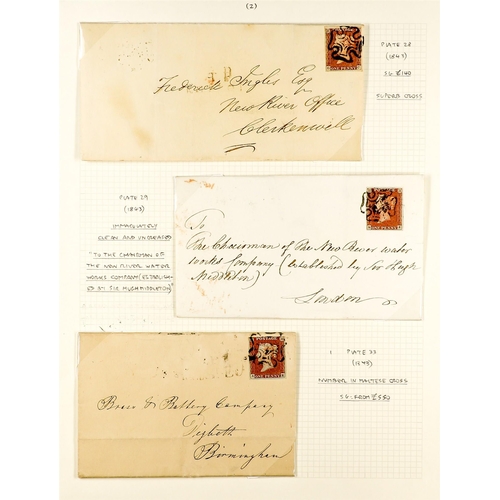 (2)
PLATE 28
(1843)
SG £140
SUPERB CROSS
J.P.
Frederick Ingles Esq
New River Office
Clerkenwell
ONE PENNY
PLATE 29
(1843)
IMMACULATELY
CLEAN AND UNCREASED
"TO THE CHAIRMAN OF
THE NEW RIVER WATER
WORKS COMPANY (ESTABLISH
ED BY SIR HUGH MIDDLETON)
To
The Chairman of The New River water
works Company (established by Sir Hugh
Middleton)
London
ONE PENNY
PLATE 33
(1843)
NUMBER IN MALTESE CROSS
SG. FROM £550
POSTAGE
ONE PENNY
Brass & Battery Company
Digbeth
Birmingham